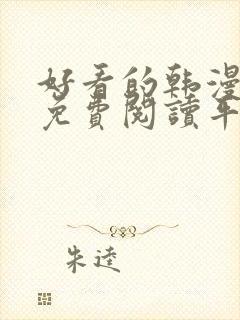 好看的韩漫
免費閱讀平
朱逵